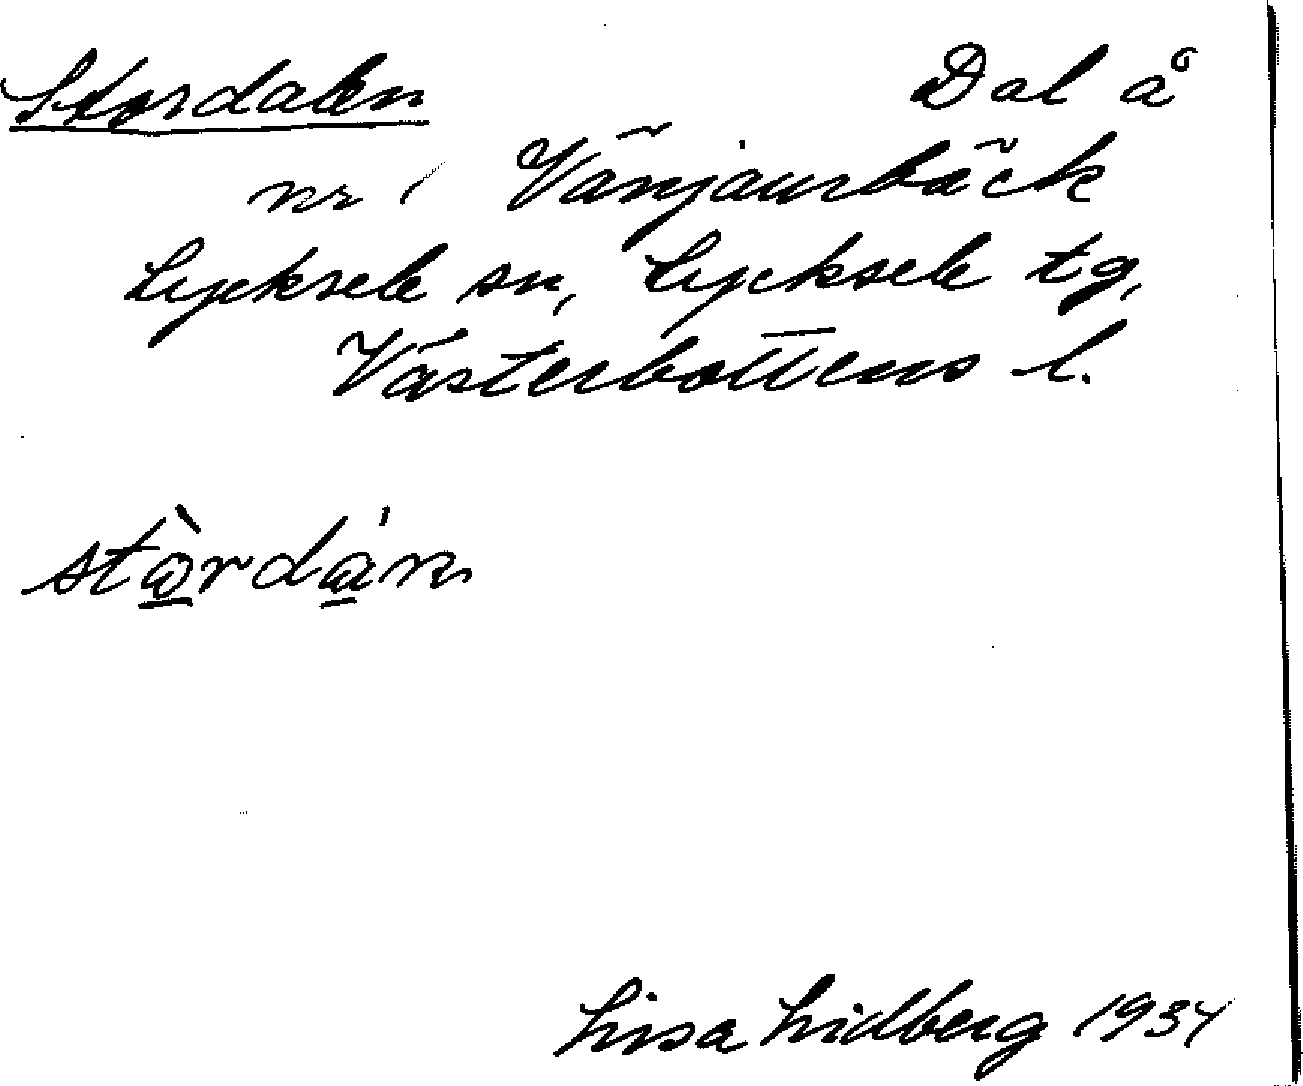 Stordalen Dal å
nr 1 Vänjaurbäck
Lycksele sn, Lycksele tg,
Västerbottens l.
stòrdán
Lisa Lidberg 1934